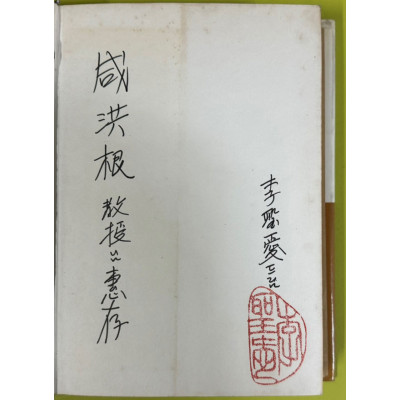 咸洪根 教授님 惠存
李聖愛 드림